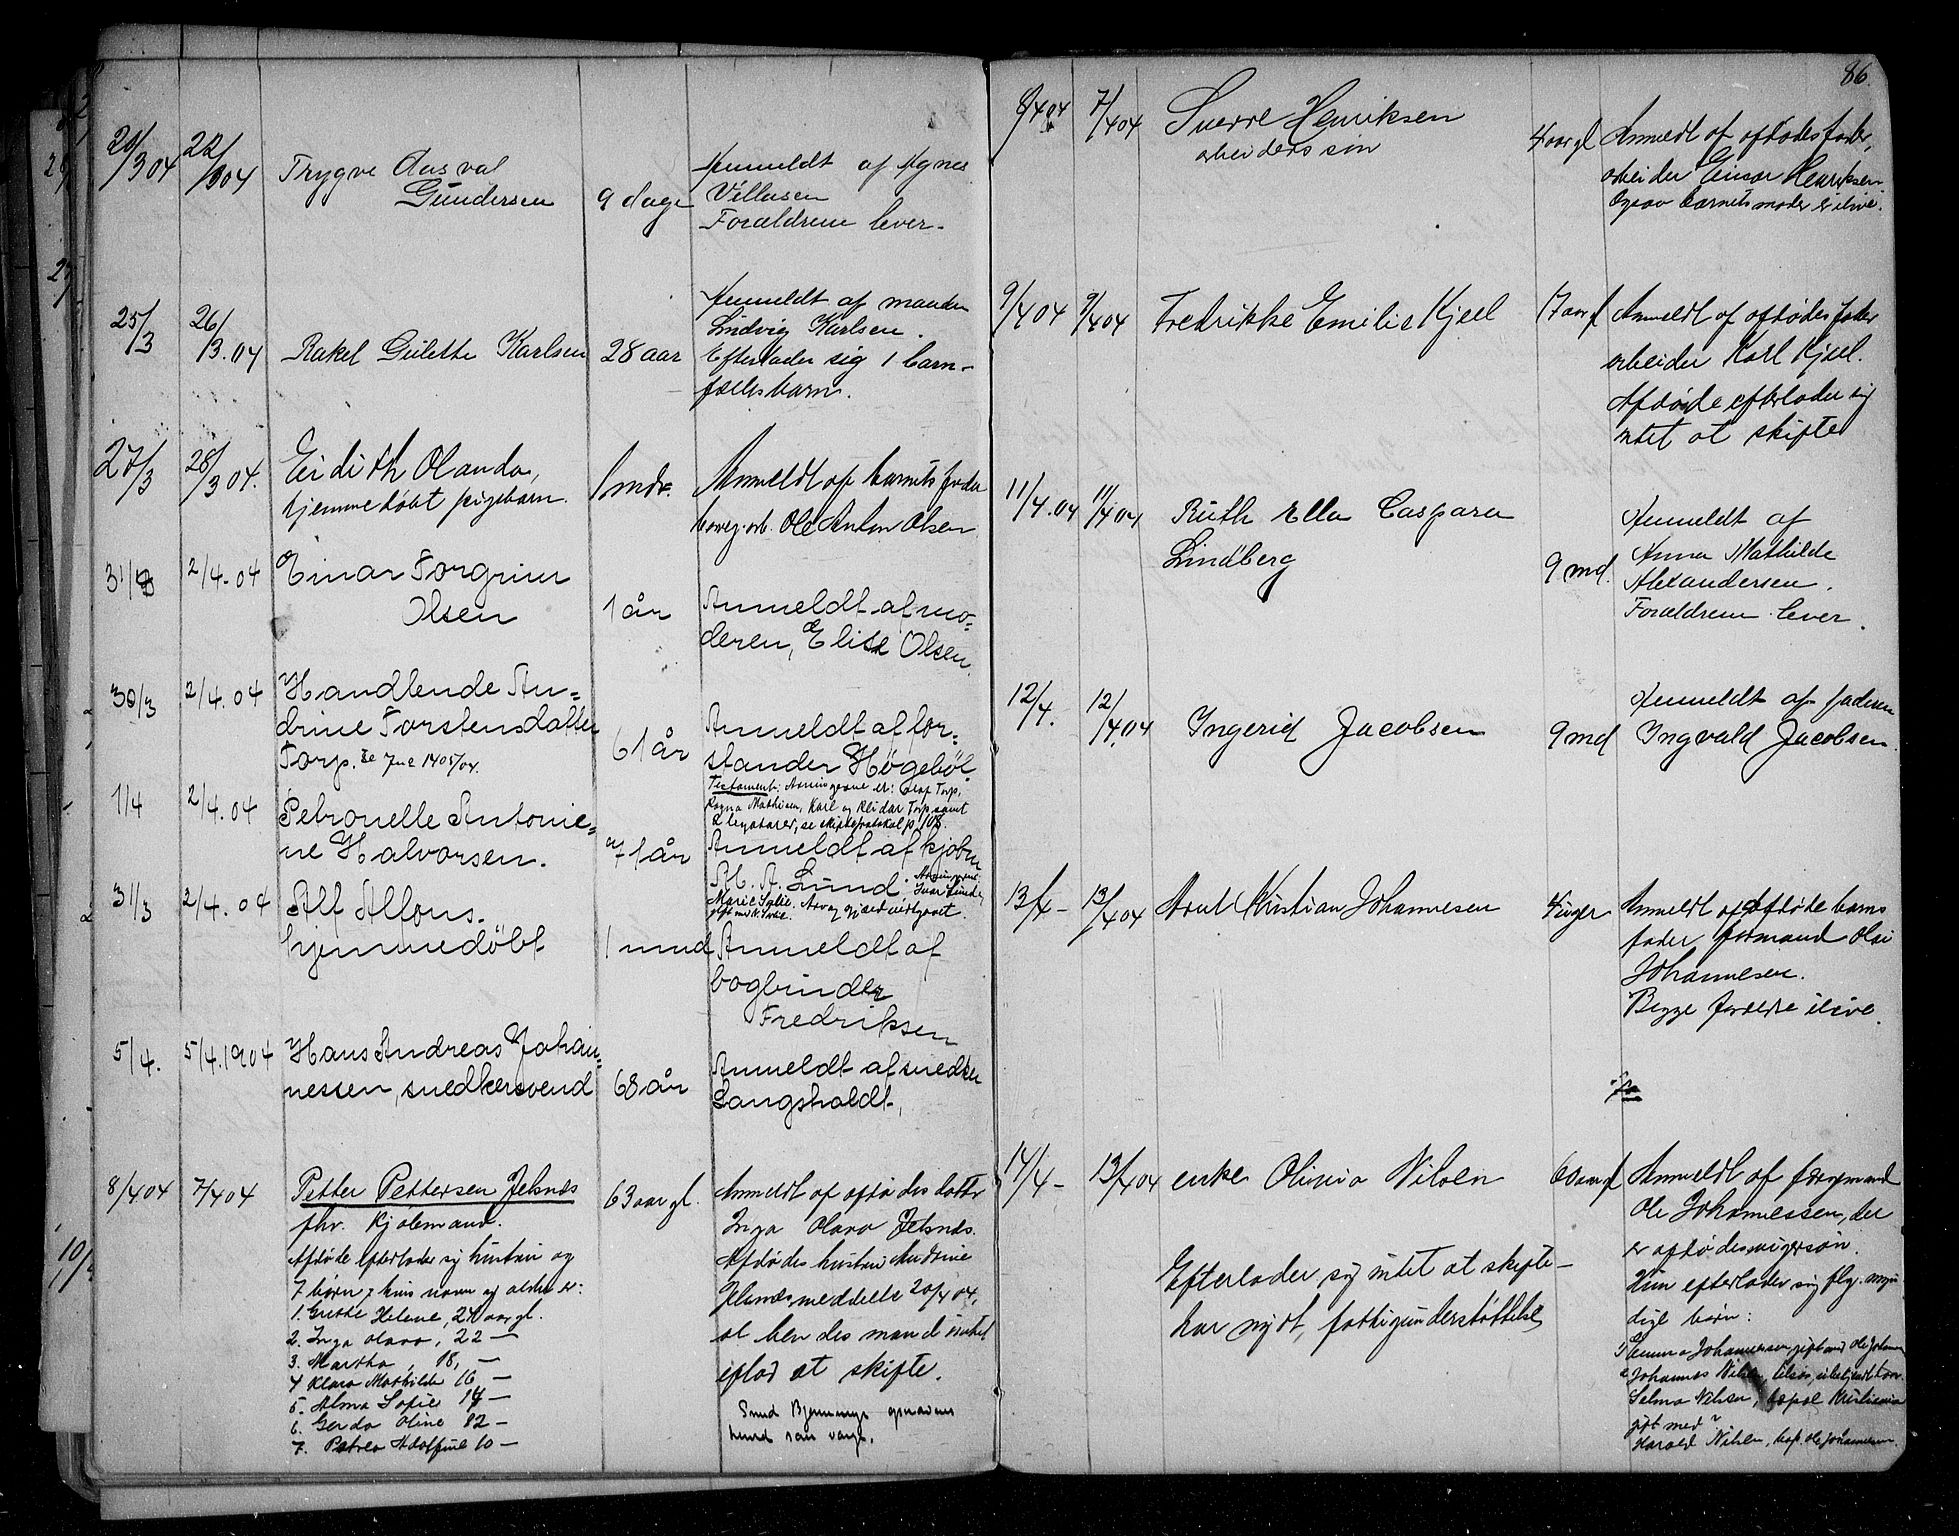 20/3 04 22/3 04 Trygve Aasval
Gundersen 9 dage
Anmeldt af Agnes
Villusen
Forældrene lever.
25/3 26/3.04 Rakel Gulette Karlsen 28 aar
Anmeldt af manden
Ludvig Karlsen.
Efterlader sig 1 barn -
fællesbarn.
27/3 28/3 04. Eidith Olanda,
hjemmedøbt pigebarn. 1 mdr.
Anmeldt af barnets fader
Ole Anton Olsen
31/3 2/4-04 Einar Torgrim
Olsen 1 år
Anmeldt af mo=
deren, Elise Olsen.
30/3 2/4.04 Handlende An=
drine Torstensdatter
Torp. Se Jne 1405/04. 61 år
Anmeldt af for=
stander Høgebøl.
Testament: Arvingerne er: Olaf Torp,
Ragna Mathisen, Karl og Reidar Torp samt
2 legatarer, se skifteprotokol p. 108.
1/4 2/4.04 Petronelle Antonie=
ne Halvorsen. 71 år
Anmeldt af kjøbm
A. Lund.
31/3 2/4.04 Alf Alfons.
hjemmedöbt 1 mnd
Anmeldt af
bogbinder
Fredriksen
5/4. 5/4.1904 Hans Andreas Johan=
nessen, snedkersvend 68 år
Anmeldt af snedker
Langsholdt,
8/4 04 7/4 04 Petter Pettersen Jelsnes
fhv. Kjølemand. 63 aar gl.
Afdøde efterlader sig hustru og
7 børn, hvis navn og alder er:
1. Grethe Helene, 24 aar gl.
2. Inga Olava, 22 —
3. Martha, 18, —
4 Klara Mathilde 16 —
5. Alma Sofie 14 —
6. Gerda Oline 12 —
7. Petrea Adolfine 10 —
Anmeldt af afdødes datter
Inga Olava Jelsnes.
Afdødes hustru Andrine
Jelsnes meddelte 20/4 04,
at hendes mand intet
eflod at skifte.
86.
8/4 04 7/4 04 Sverre Henriksen
arbeiders søn 4 aar gl
Anmeldt af afdødes fader,
arbeider Einar Henriksen.
Ogsaa barnets moder er ilive.
9/4 04 9/4 04 Fredrikke Emilie Kjsel 17 aar gl
Anmeldt af afdødes fader
arbeider Karl Kjsel.
Afdøde efterlader sig
intet at skifte
11/4.04 11/4 04 Ruth Ella Caspara
Lindberg 9 md.
Anmeldt af
Anna Mathilde
Alexandersen.
Forældrene lever.
12/4. 12/4.04 Ingerid Jacobsen 9 md
Anmeldt af faderen
Ingvald Jacobsen.
13/4- 13/4 04 Arnt Kristian Johannesen 4 uger
Anmeldt af afdøde barns
fader formand Olai
Johannesen.
Begge forældre ilive.
14/4- 13/4 04 enke Olivia Nilsen 60 aar gl
Efterlader sig intet at skifte -
har nydt fattigunderstøttelse
Anmeldt af
Ole Johannessen, der
er afdødes svigersøn.
Hun efterlader sig flg. myn-
dige børn:
1 Emma Johannessen, gift med Ole Johannesen
2 Johannes Nilsen, tilsøs, ubekjendt hvor.
Selma Nilsen, bopæl Kristiania
gift med ?
Harald Nilsen, bop. Ole Johannesen.